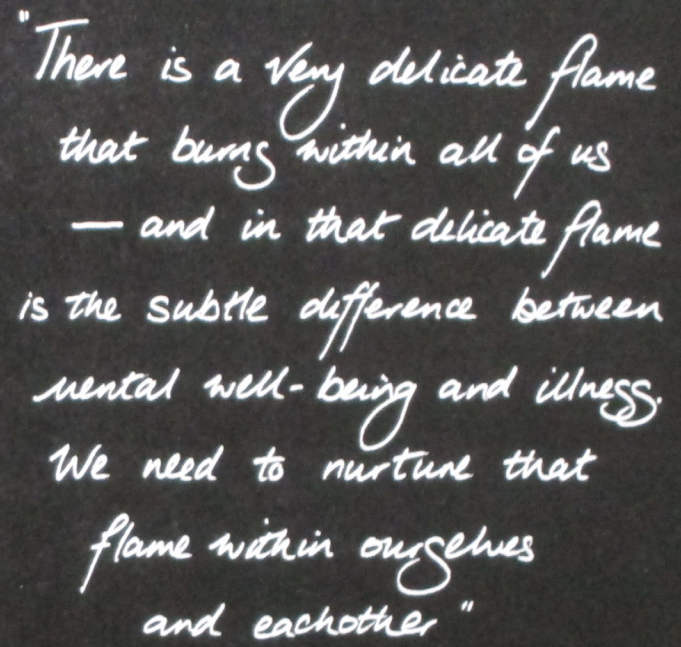 "There is a very delicate flame
that burns within all of us
— and in that delicate flame
is the subtle difference between
mental well-being and illness.
We need to nurture that
flame within ourselves
and eachother"